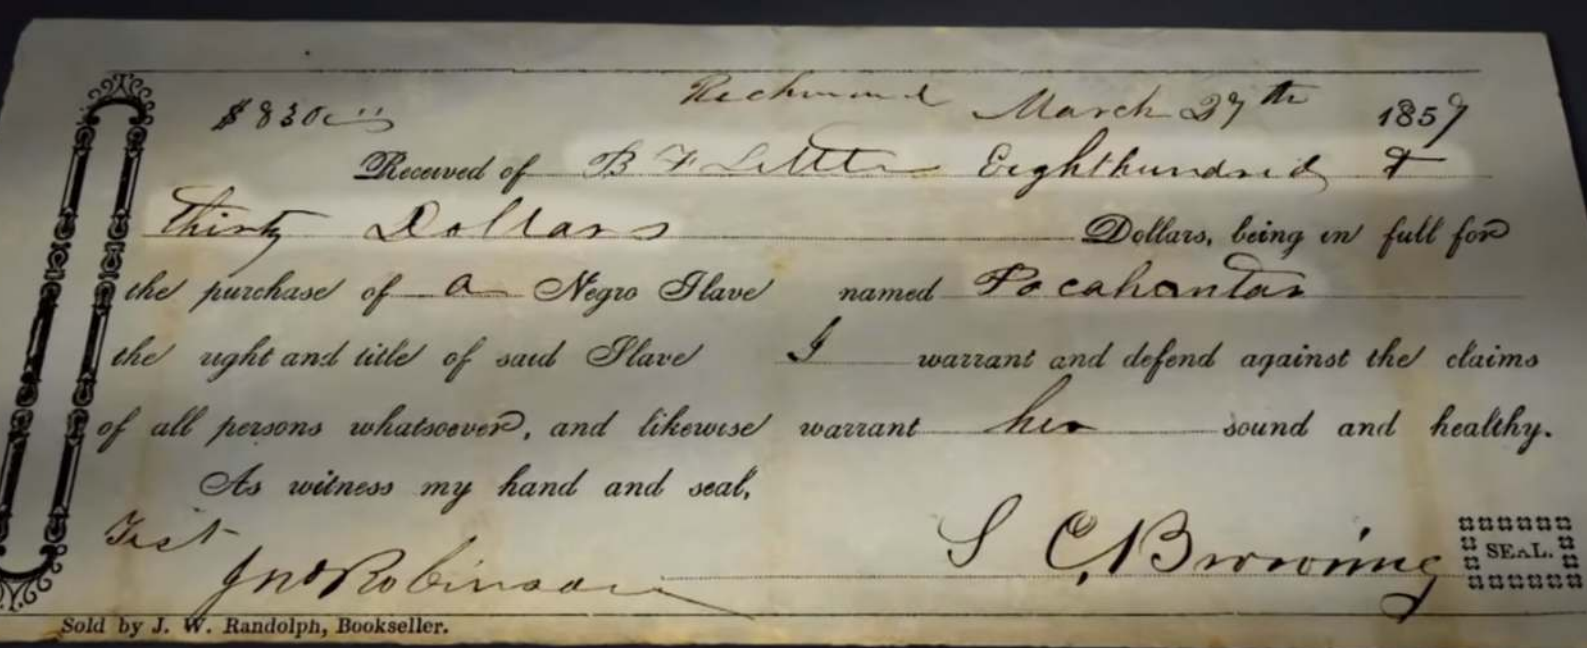 $830.00 Richmond March 27th 1857
Received of B F Little Eighthundred &
Thirty Dollars Dollars, being in full for
the purchase of a Negro Slave named Pocahantas
the right and title of said Slave I warrant and defend against the claims
of all persons whatsoever, and likewise warrant her sound and healthy.
As witness my hand and seal,
Test
Jno Robinson S C Browning SEAL.
Sold by J. W. Randolph, Bookseller.